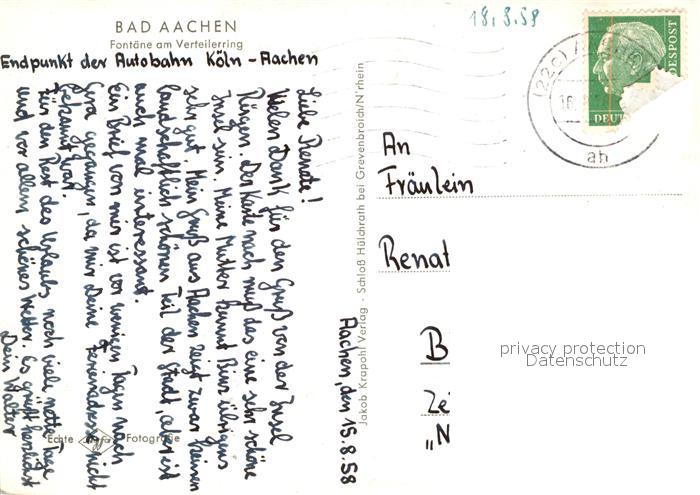 BAD AACHEN
Fontäne am Verteilerring
Endpunkt der Autobahn Köln - Aachen
18.8.58
Aachen, den 15.8.58
Liebe Renate!
Vielen Dank für den Gruß von der Insel
Rügen. Der Karte nach muß das eine sehr schöne
Insel sein. Meine Mutter kennt Binz übrigens
sehr gut. Mein Gruß aus Aachen zeigt zwar keinen
landschaftlich schönen Teil der Stadt, aber ist
auch mal interessant.
Ein Brief von mir ist vor wenigen Tagen nach
Gera gegangen, da mir Deine Ferienadresse nicht
bekannt war.
Für den Rest des Urlaubs noch viele nette Tage
und vor allem schönes Wetter. Es grüßt herzlichst
Dein Walter
Echte Agfa Fotografie
Jakob Krapohl Verlag - Schloß Hülchrath bei Grevenbroich/N'rhein
(22c)
16.
ah
DESPOST
DEUT
An
Fräulein
Renat
B
Ze
„N
privacy protection
Datenschutz